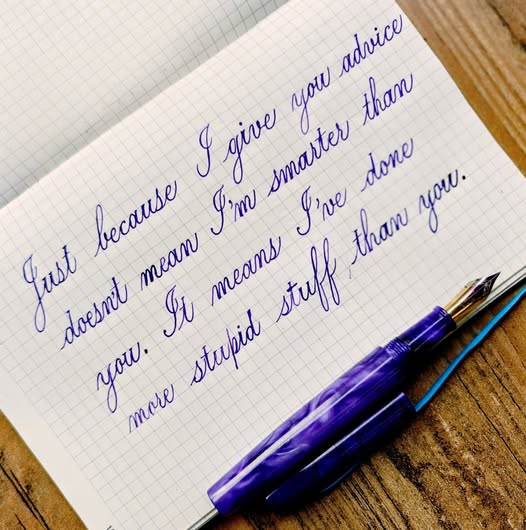 Just because I give you advice
doesnt mean I'm smarter than
you. It means I've done
more stupid stuff than you.